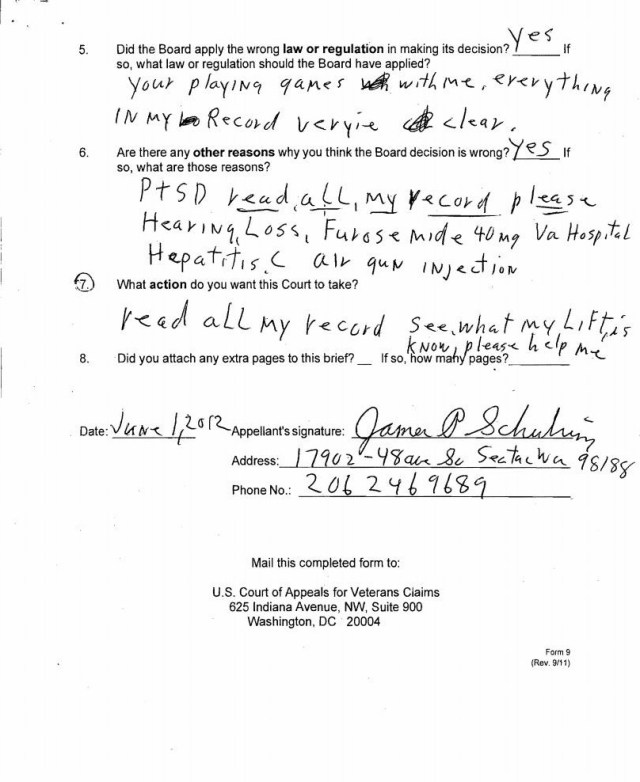 5. Did the Board apply the wrong law or regulation in making its decision? Yes If
so, what law or regulation should the Board have applied?
Your playing games with me, everything
IN my Record veryie clear.
6. Are there any other reasons why you think the Board decision is wrong? Yes If
so, what are those reasons?
PTSD read all, my record please
Hearing Loss, Furosemide 40 mg Va Hospital
Hepatitis C air gun injection
7. What action do you want this Court to take?
read all my record see what my Lift, is
know, please help me
8. Did you attach any extra pages to this brief? __ If so, how many pages?______
Date: June 1, 2012 Appellant's signature: James P
Address: 17902-48 ave So Seatac Wa 98188
Phone No.: 206 246 9689
Mail this completed form to:
U.S. Court of Appeals for Veterans Claims
625 Indiana Avenue, NW, Suite 900
Washington, DC 20004
Form 9
(Rev. 9/11)